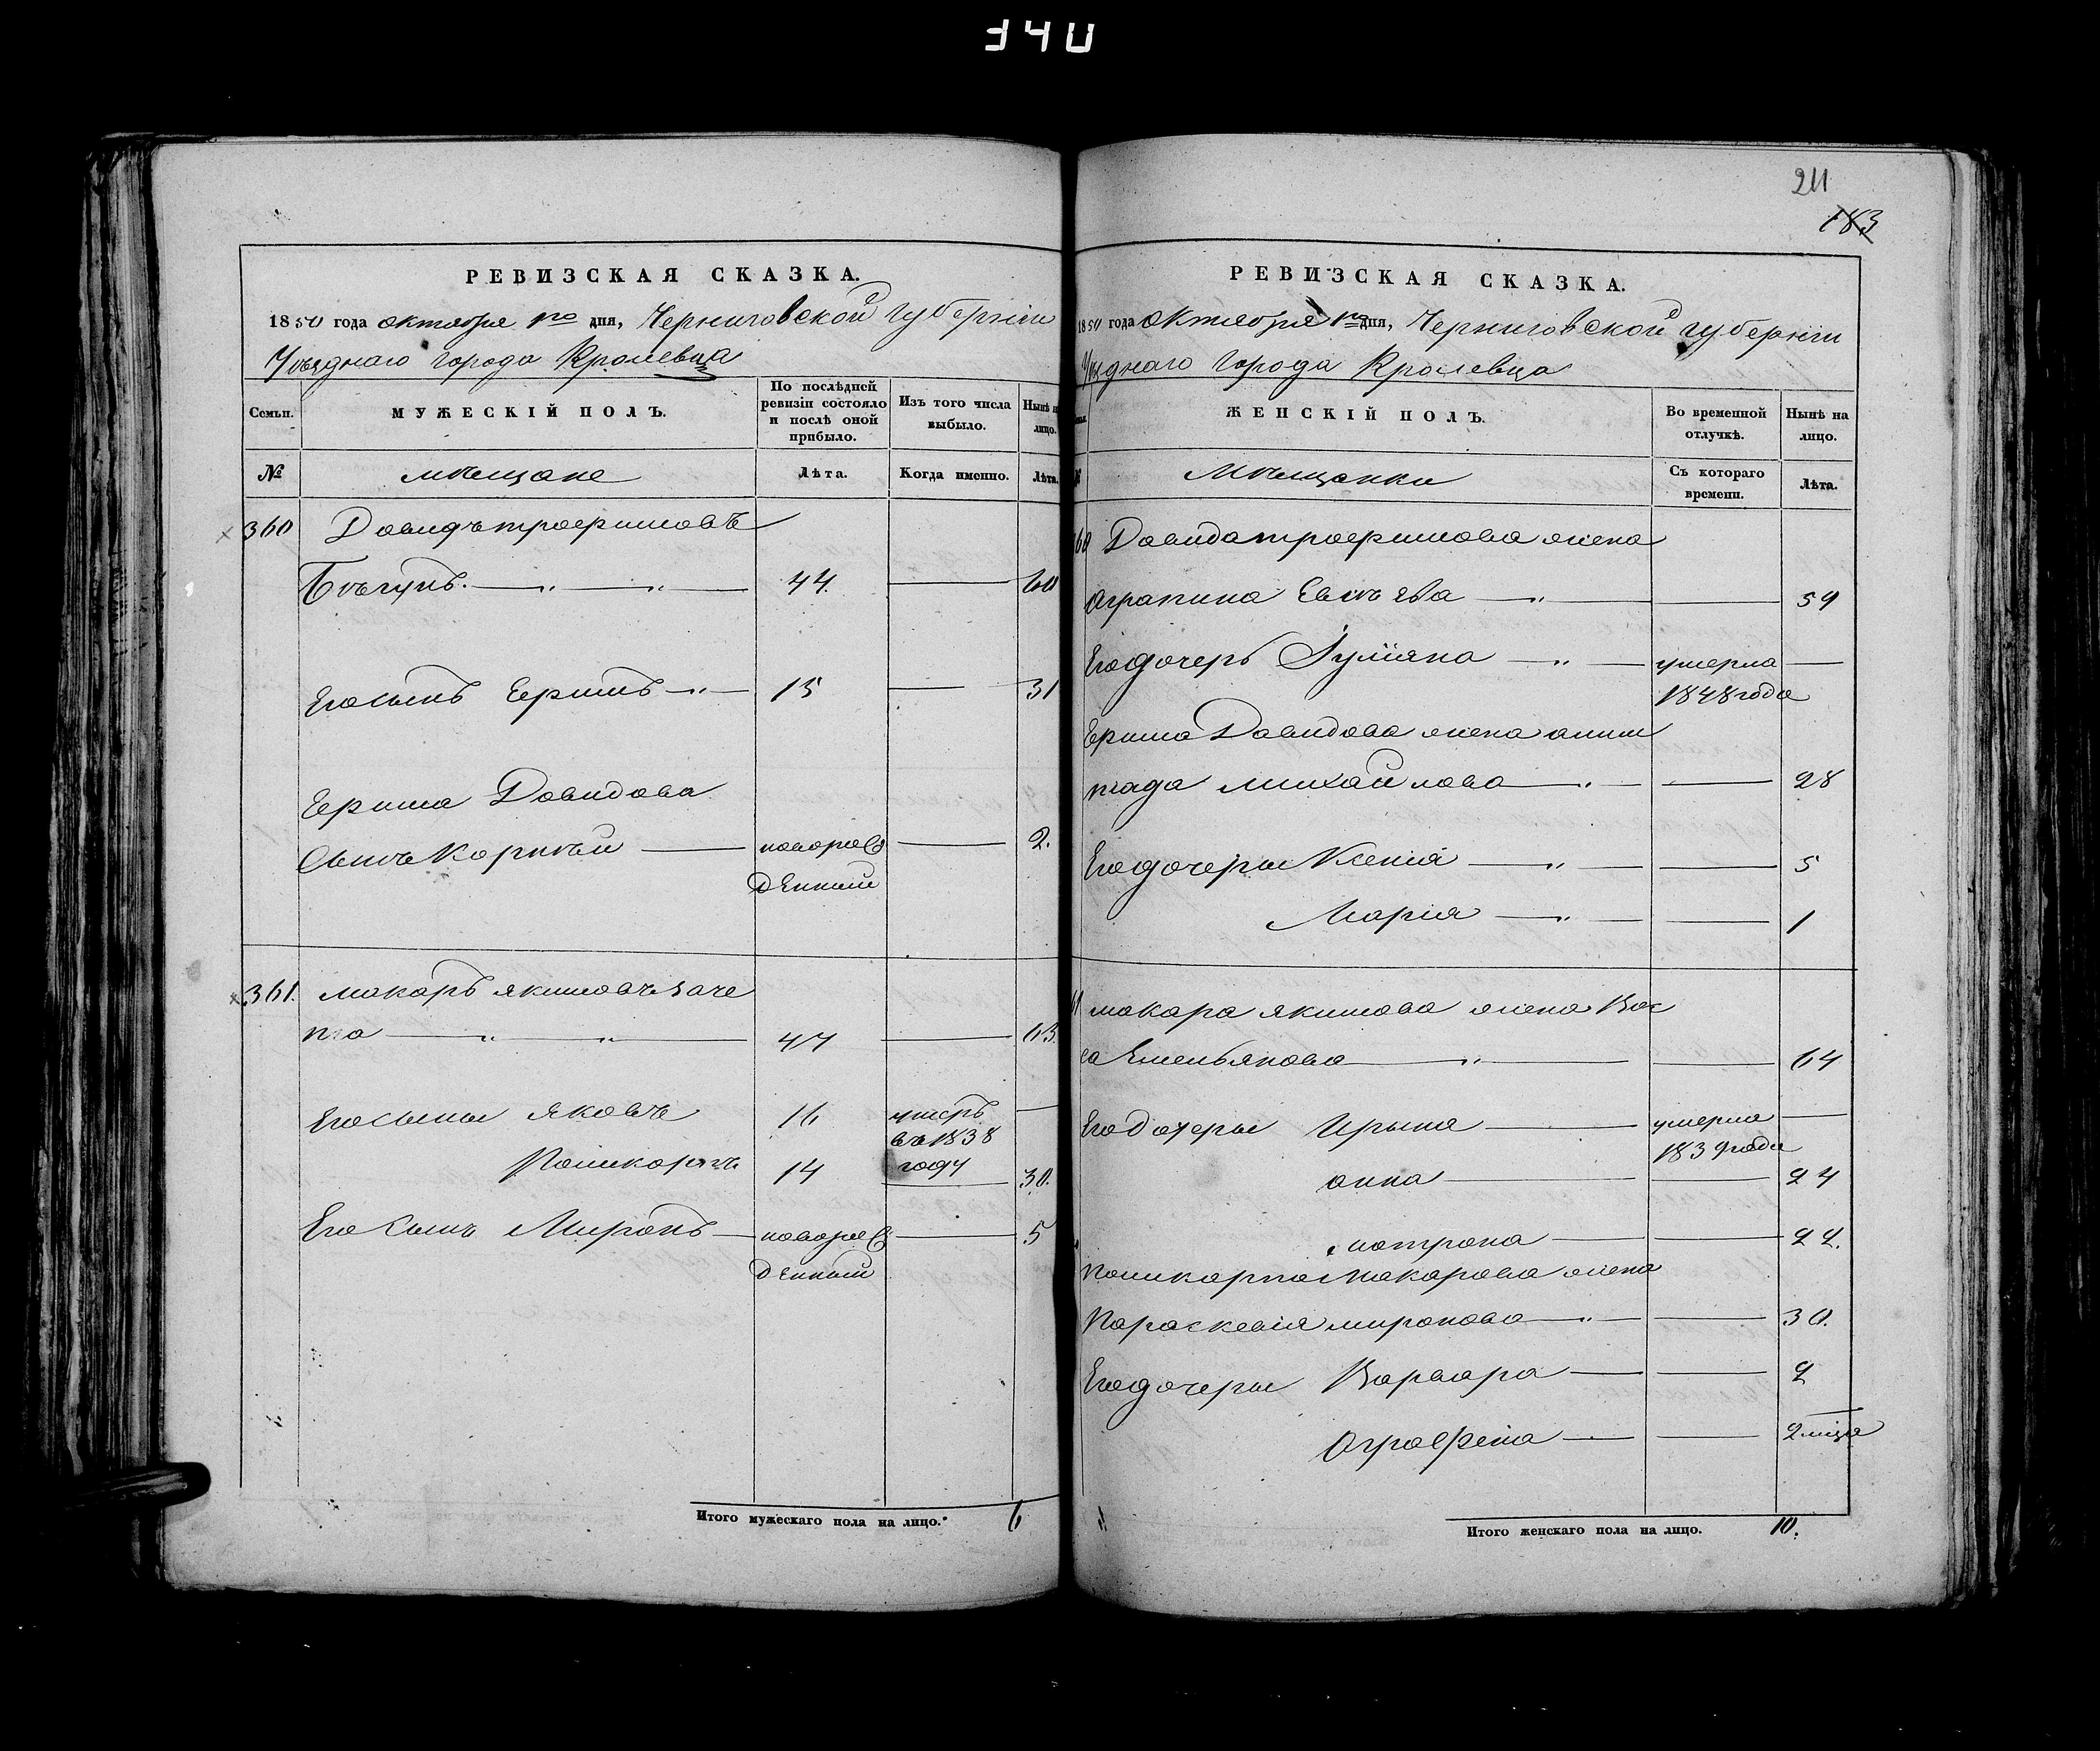 340
РЕВИЗСКАЯ СКАЗКА.
1850 года октября 1го дня, Черниговской губернiи
Уѣзднаго города Кролевца
Семьи.
МУЖЕСКIЙ ПОЛЪ.
По послѣдней ревизiи состояло и послѣ оной прибыло.
Изъ того числа выбыло.
Нынѣ на лицо.
№
мѣщане
Лѣта.
Когда именно.
Лѣта.
360 Давидъ трофимовъ
Бѣгунъ. 44. 60
Его сынъ Ефимъ 15 31
Ефима Давидова
Сынъ Корнѣй новорож 2.
денный
361. макаръ якимовъ Заче
па 47 63.
Его сыны яковъ 16 умеръ
въ 1838
Поликарпъ 14 году 30.
Его Сынъ Миронъ новорож 5
денный
Итого мужескаго пола на лицо. 6
211
183
РЕВИЗСКАЯ СКАЗКА.
1850 года октября 1го дня, Черниговской губернiи
Уѣзднаго города Кролевца
ЖЕНСКIЙ ПОЛЪ.
Во временной отлучкѣ.
Нынѣ на лицо.
мѣщанки
Съ котораго времени.
Лѣта.
360 Давида трофимова жена
Аграпина 59
Его дочерь Iулiяна умерла
1848 года
Ефима Давидова жена
михайлова 28
Его дочеры Ксенiя 5
Марiя 1
61 макара якимова жена Вас
са Емельянова 64
Его дочеры Ирына умерла
1839 года
анна 24
мотрона 22.
поликарпа Макарова жена
Параскевiя миронова 30.
Его дочеры Варвара 2
Аграфена 2 мѣца
Итого женскаго пола на лицо. 10.